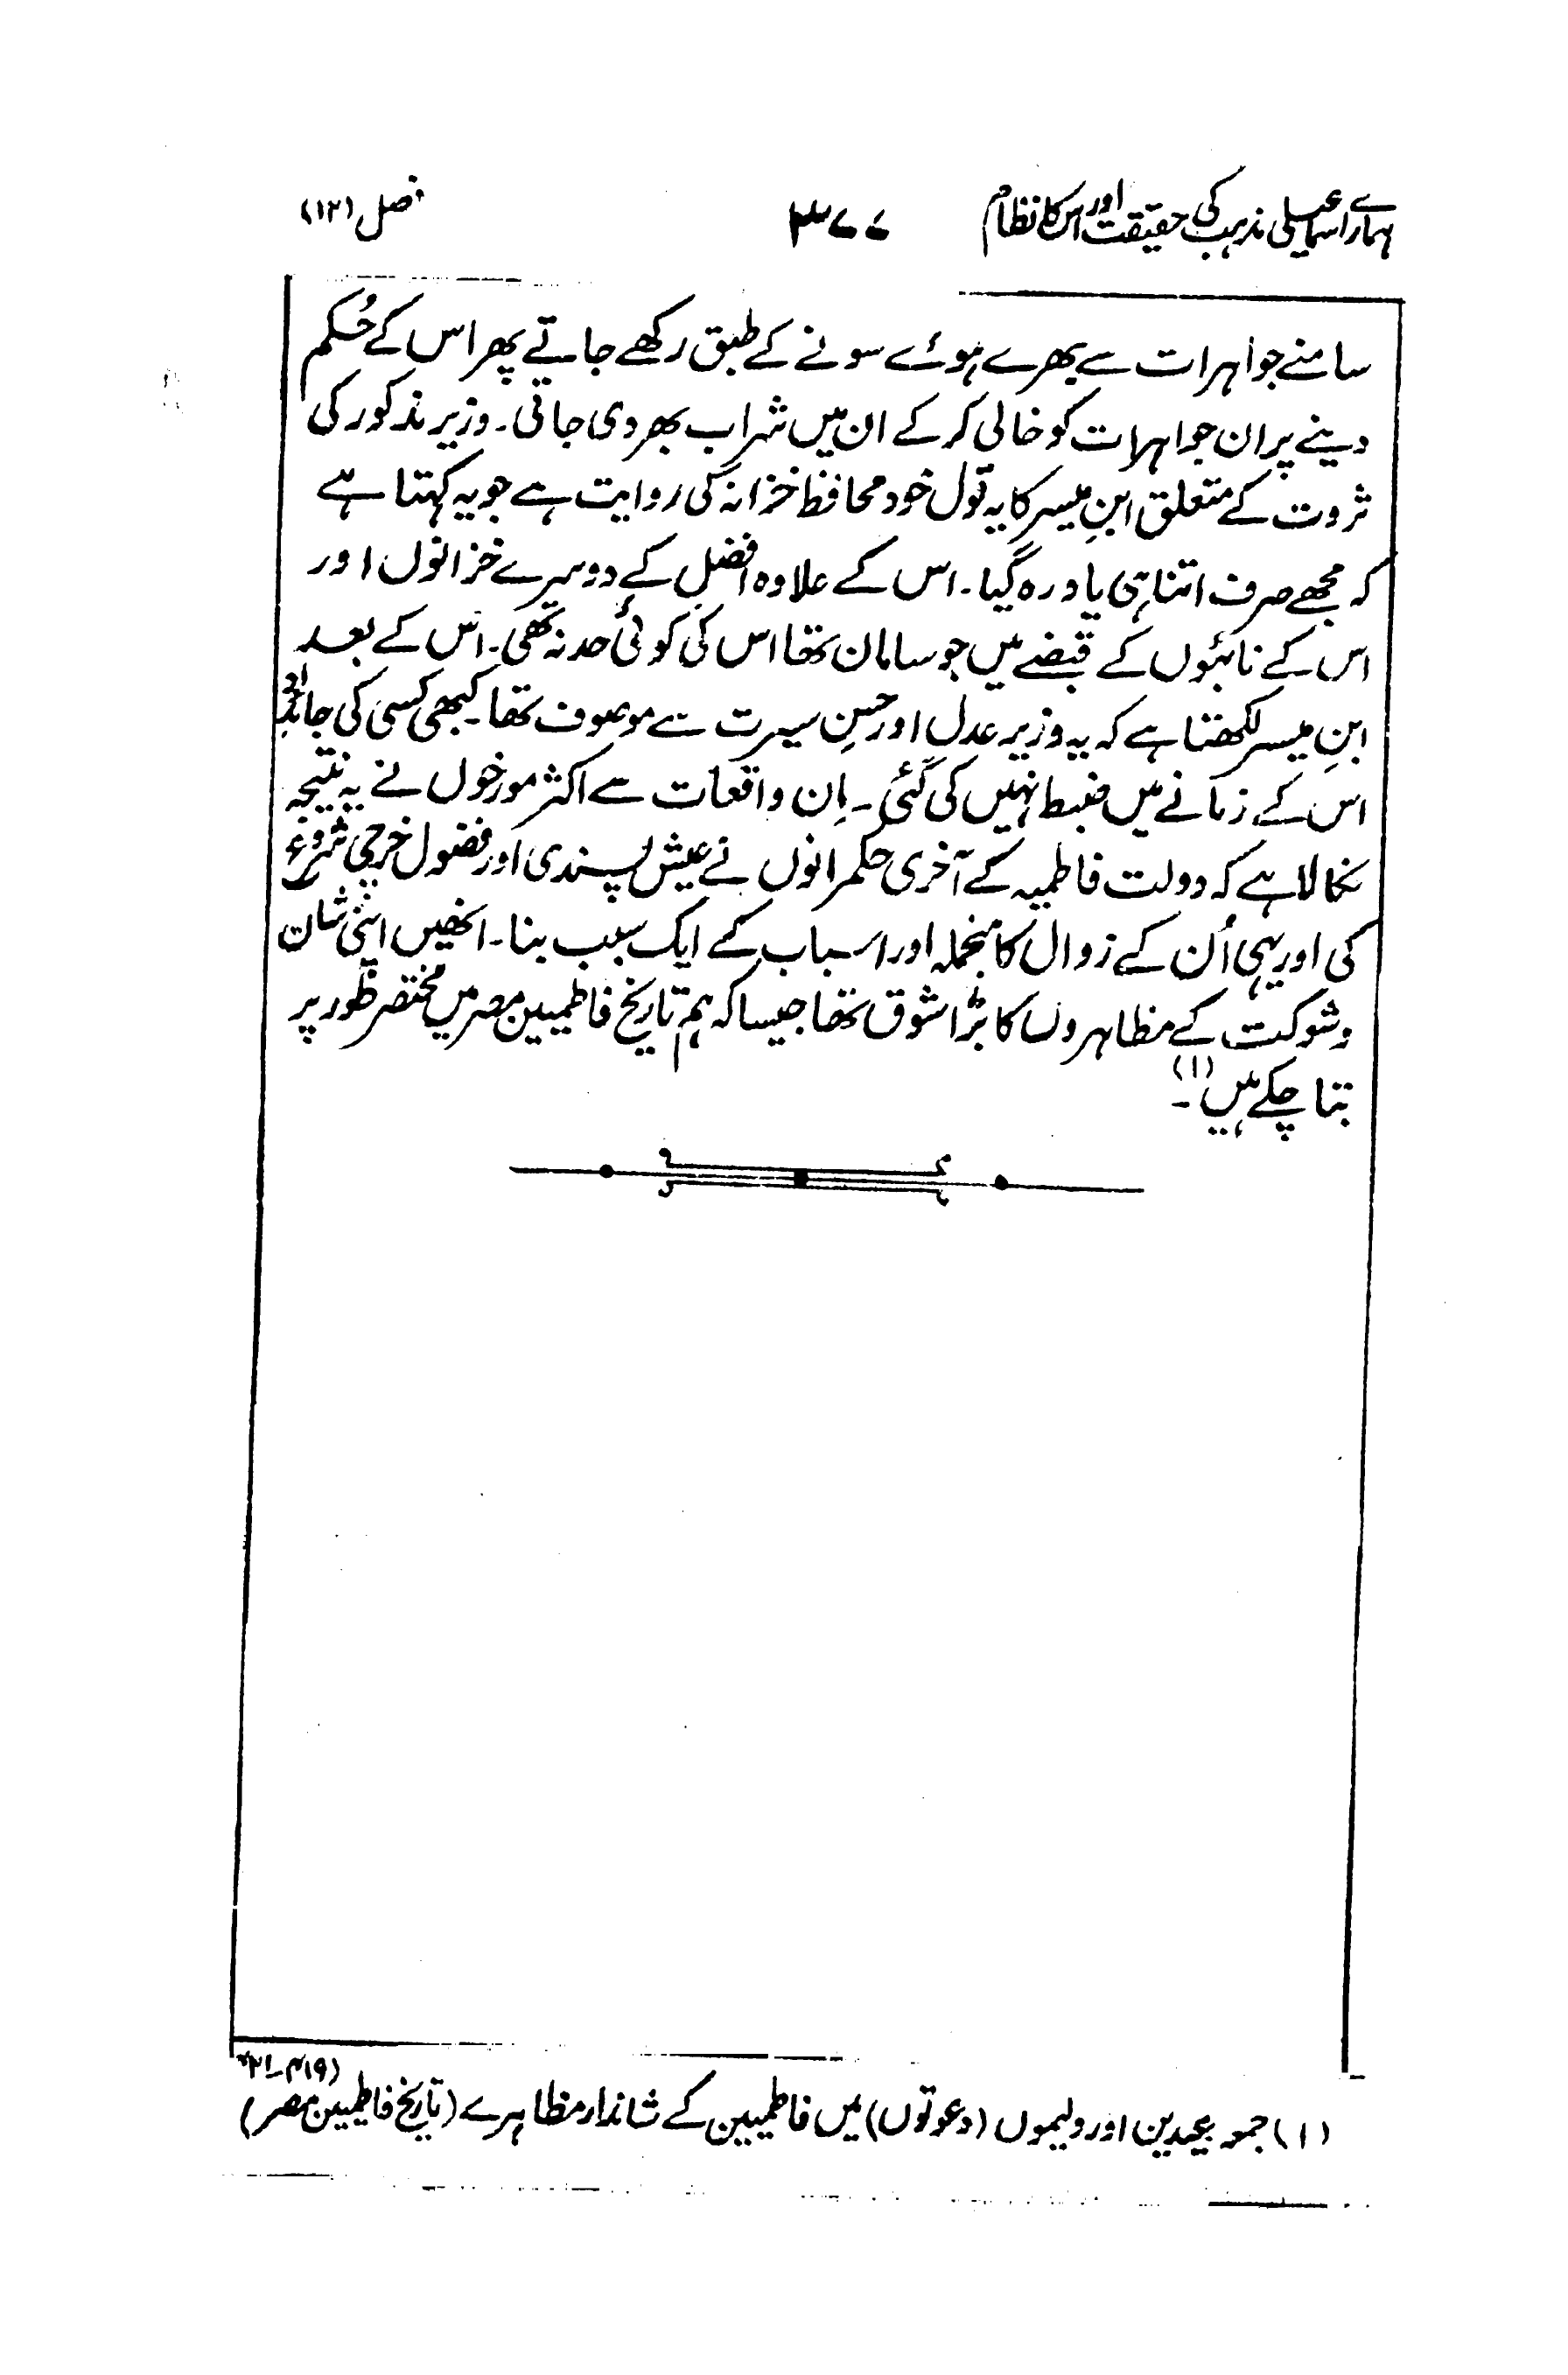 ہمارے اسماعیلی مذہب کی حقیقت اور اس کا نظام ۳۷۷ فصل (۱۲)
سامنے جواہرات سے بھرے ہوئے سونے کے طبق رکھے جاتے پھر اس کے حُکم
دینے پر ان جواہرات کو خالی کر کے ان میں شراب بھر دی جاتی۔ وزیر مذکور کی
ثروت کے متعلق ابنِ میسر کا یہ قول خود محافظ خزانہ کی روایت ہے جو یہ کہتا ہے
کہ مجھے صرف اتنا ہی یاد رہ گیا۔ اس کے علاوہ افضل کے دوسرے خزانوں اور
اس کے نائبوں کے قبضے میں جو سامان تھا اس کی کوئی حد نہ تھی۔ اس کے بعد
ابنِ میسر لکھتا ہے کہ یہ وزیر عدل اور حسنِ سیرت سے موصوف تھا۔ کبھی کسی کی جائداد
اس کے زمانے میں ضبط نہیں کی گئی۔ اِن واقعات سے اکثر مورخوں نے یہ نتیجہ
نکالا ہے کہ دولت فاطمیہ کے آخری حکمرانوں نے عیش پسندی اور فضول خرچی شروع
کی اور یہی اُن کے زوال کا منجملہ اور اسباب کے ایک سبب بنا۔ انھیں اپنی شان
و شوکت کے مظاہروں کا بڑا شوق تھا جیسا کہ ہم تاریخ فاطمیین مصر میں مختصر طور پر
بتا چکے ہیں (۱)۔
(۱) جمعہ عیدین اور ولیموں (دعوتوں) میں فاطمیین کے شاندار مظاہرے (تاریخ فاطمیین مصر)